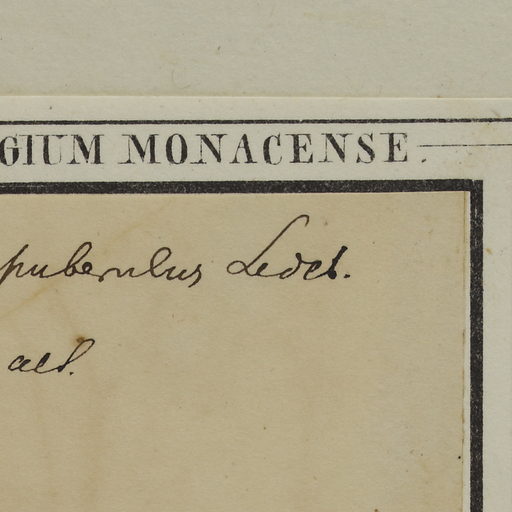 GIUM MONACENSE.
puberulus Ledeb.